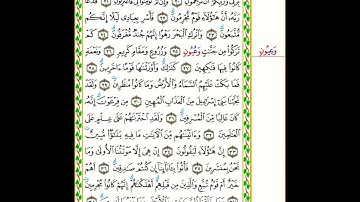 بِرَبِّى وَرَبِّكُمْ أَن تَرْجُمُونِ ٢٠ وَإِن لَّمْ تُؤْمِنُوا۟ لِى فَٱعْتَزِلُونِ ٢١ فَدَعَا
رَبَّهُۥٓ أَنَّ هَـٰٓؤُلَآءِ قَوْمٌ مُّجْرِمُونَ ٢٢ فَأَسْرِ بِعِبَادِى لَيْلًا إِنَّكُم
مُّتَّبَعُونَ ٢٣ وَٱتْرُكِ ٱلْبَحْرَ رَهْوًا إِنَّهُمْ جُندٌ مُّغْرَقُونَ ٢٤ كَمْ
تَرَكُوا۟ مِن جَنَّـٰتٍ وَعُيُونٍ ٢٥ وَزُرُوعٍ وَمَقَامٍ كَرِيمٍ ٢٦ وَنَعْمَةٍ
وَعُيُونٍ
كَانُوا۟ فِيهَا فَـٰكِهِينَ ٢٧ كَذَٰلِكَ وَأَوْرَثْنَـٰهَا قَوْمًا ءَاخَرِينَ ٢٨
فَمَا بَكَتْ عَلَيْهِمُ ٱلسَّمَآءُ وَٱلْأَرْضُ وَمَا كَانُوا۟ مُنظَرِينَ ٢٩ وَلَقَدْ
نَجَّيْنَا بَنِىٓ إِسْرَٰٓءِيلَ مِنَ ٱلْعَذَابِ ٱلْمُهِينِ ٣٠ مِن فِرْعَوْنَ إِنَّهُۥ
كَانَ عَالِيًا مِّنَ ٱلْمُسْرِفِينَ ٣١ وَلَقَدِ ٱخْتَرْنَـٰهُمْ عَلَىٰ عِلْمٍ عَلَى
ٱلْعَـٰلَمِينَ ٣٢ وَءَاتَيْنَـٰهُم مِّنَ ٱلْـَٔايَـٰتِ مَا فِيهِ بَلَـٰٓؤٌا۟ مُّبِينٌ ٣٣
إِنَّ هَـٰٓؤُلَآءِ لَيَقُولُونَ ٣٤ إِنْ هِىَ إِلَّا مَوْتَتُنَا ٱلْأُولَىٰ وَمَا
نَحْنُ بِمُنشَرِينَ ٣٥ فَأْتُوا۟ بِـَٔابَآئِنَآ إِن كُنتُمْ صَـٰدِقِينَ ٣٦ أَهُمْ
خَيْرٌ أَمْ قَوْمُ تُبَّعٍ وَٱلَّذِينَ مِن قَبْلِهِمْ أَهْلَكْنَـٰهُمْ إِنَّهُمْ كَانُوا۟ مُجْرِمِينَ